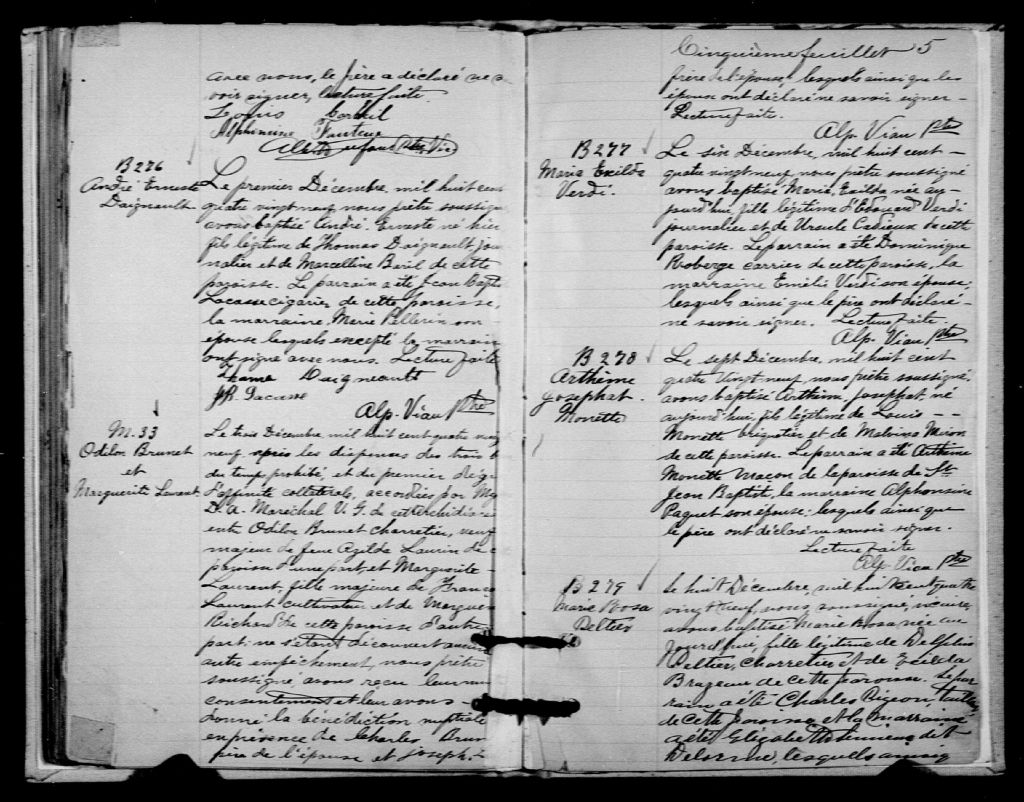 avec nous, le père a déclaré ne sa
voir signer, lecture faite.
Louis
Alphonsine Fauteux
B 276
André Ernest
Daigneault
Le premier Décembre, mil huit cent
quatre vingt neuf, nous prêtre soussigné
avons baptisé André Ernest né hier
fils légitime de Thomas Daigneault jour
nalier et de Marcelline Beril de cette
paroisse. Le parrain a été Jean Baptis
Lacasse cigarier de cette paroisse,
la marraine Marie Pellerin son
épouse lesquels excepté la marrain
ont signé avec nous. Lecture faite
Daigneault
J.B. Lacasse
Alp. Viau Ptre
M. 33
Odilon Brunet
et
Marguerite Laurent
Le trois Décembre mil huit cent quatre vingt
neuf après les dispenses des trois b
du temps prohibé et du premier dégr
d'affinité collatérale, accordées par Mg
L. A. Maréchal V. G. de cet archidiocè
ent Odilon Brunet charretier, veuf
majeur de feue Azilda Laurin de c
paroisse d'une part, et Marguerite
Laurent, fille majeure de Franco
Laurent cultivateur et de Marguer
Richard de cette paroisse d'autre
part: ne s'étant découvert aucun
autre empêchement, nous prêtre
soussigné avons reçu leur mu
consentement et leur avons
donné la bénédiction nuptiale
en présence de Charles Brun
père de l'épouse et Joseph
Cinquième feuillet 5
frère de l'épouse, lesquels ainsi que les
époux ont déclaré ne savoir signer -
Lecture faite.
Alp. Viau Ptre
B 277
Maria Exilda
Verdi.
Le six Décembre, mil huit cent
quatre vingt neuf, nous prêtre soussigné
avons baptisé Maria, Exilda née au-
jourd'hui fille légitime d'Edouard Verdi
journalier et de Ursule Cadieux de cette
paroisse. Le parrain a été Dominique
Roberge carrier de cette paroisse, la
marraine Emélie Verdi son épouse;
lesquels ainsi que le père ont déclaré-
ne savoir signer. Lecture faite
Alp. Viau Ptre
B 278
Arthème
Josephat.
Monette
Le sept Décembre, mil huit cent
quatre vingt neuf, nous prêtre soussigné,
avons baptisé Arthème, Josephat, né
aujourd'hui, fils légitime de Louis - -
Monette briquetier et de Malvina Miron
de cette paroisse. Le parrain a été Arthème
Monette Maçon de la paroisse de St
Jean Baptiste, la marraine Alphonsine
Paquet son épouse; lesquels ainsi que
le père ont déclaré ne savoir signer.
Lecture faite
Alp. Viau Ptre
B 279
Marie Rosa
Peltier
Le huit Décembre, mil huit cent quatre
vingt neuf, nous, soussigné, vicaire,
avons baptisé Marie Rosa née au
jourd'hui, fille légitime de Delphis
Peltier, Charretier et de Exilda
Brazeau de cette paroisse. Le par
rain a été Charles Bigeon,
de cette paroisse et la marraine
a été Elizabeth
Delorme, lesquels ainsi q